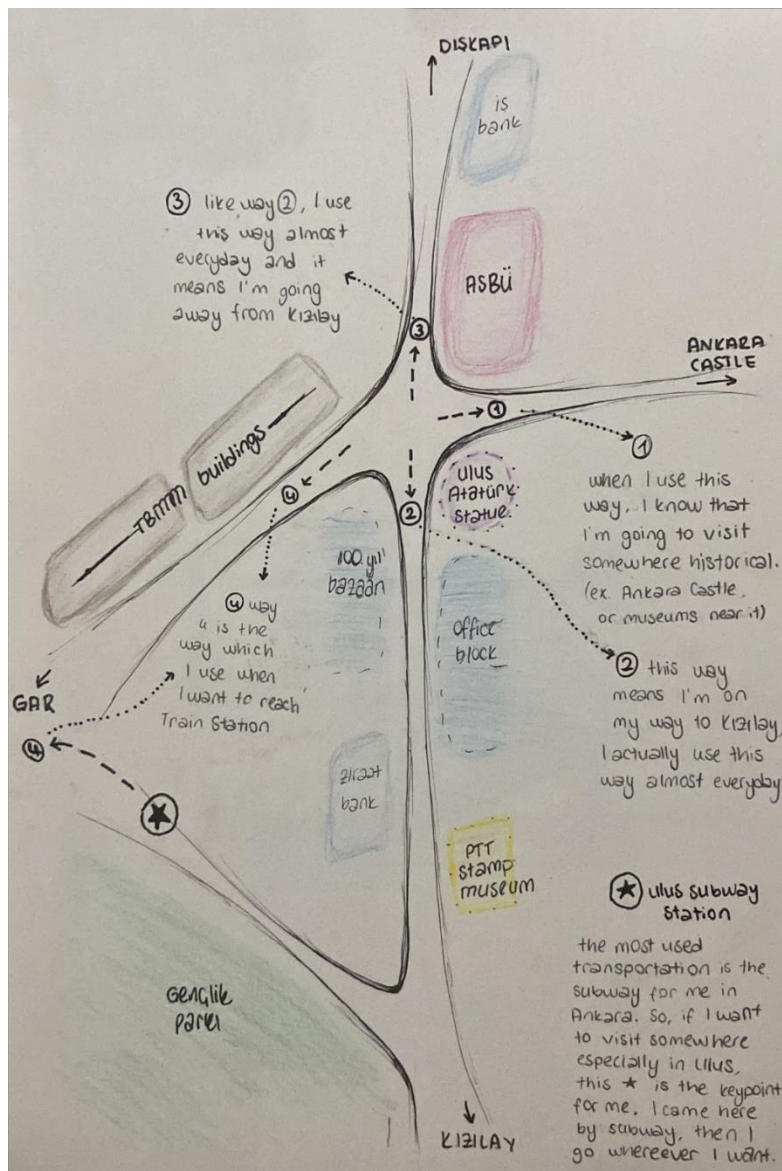 DIŞKAPI
iş
bank
③ like way ②, I use
this way almost
everyday and it
means I'm going
away from KIZILAY
ASBÜ
③
ANKARA
CASTLE
①
①
when I use this
way, I know that
I'm going to visit
somewhere historical.
(ex. Ankara Castle,
or museums near it)
TBMM buildings
④
②
ulus
Atatürk
statue
100.yıl
bazaar
office
block
② this way
means I'm on
my way to KIZILAY,
I actually use this
way almost everyday
④ way
4 is the
way which
I use when
I want to reach
Train Station
GAR
④
★
ziraat
bank
PTT
stamp
museum
★ ulus subway
station
the most used
transportation is the
subway for me in
Ankara. So, if I want
to visit somewhere
especially in Ulus,
this ★ is the keypoint
for me. I came here
by subway, then I
go whereever I want.
Gençlik
parkı
KIZILAY